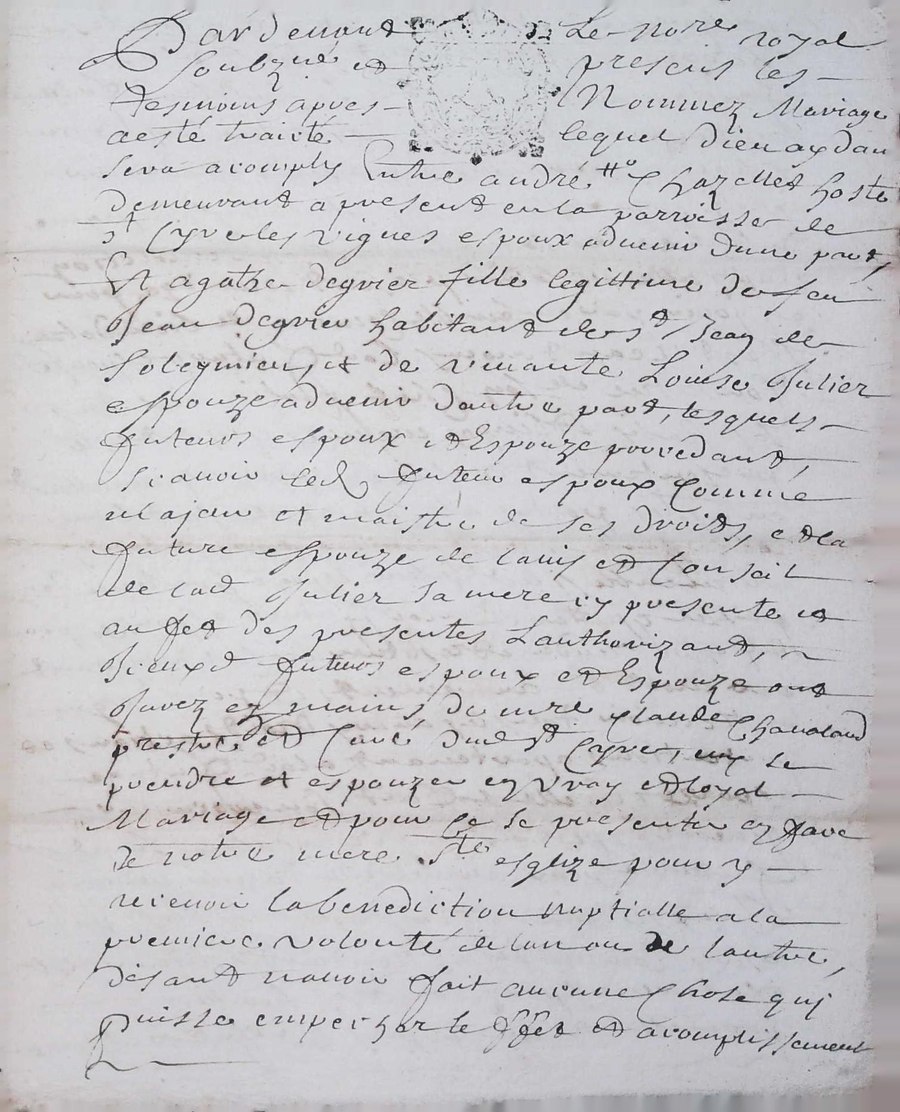 Pardevant Le Nore royal
Soubzné et presens les
tesmoins apres Nommez Mariage
a esté traité lequel Dieu aydant
sera acomply Entre andré Chazellet hoste
demeurant a present en la parroisse de
St Cyre les vignes espoux aduenir dune part,
Et agathe degrier fille legittime de feu
Jean degrier habitant de St Jean de
Soleymieu, et de viuante Louise Julier
espouze aduenir dautre part, lesquels
futeurs espoux et Espouze procedant,
scauoir led futeur espoux Comme
majeur et maistre de ses droits, et la
future espouze de lauis et Conseil
de lad Julier sa mere icy presente et
au fet des presentes Lauthorizant,
Iceux d futeurs espoux et Espouze ont
Jurez ez mains de mre Claude
prestre et Curé dud St Cyre, se
prendre et espouzer en vray et loyal
Mariage et pour Ce se presenter en face
de notre mere Ste esglize pour y
receuoir la benediction nuptialle a la
premiere volonté de lun ou de lautre,
disant nauoir fait aucune Chose quj
puisse empescher le et acomplissement